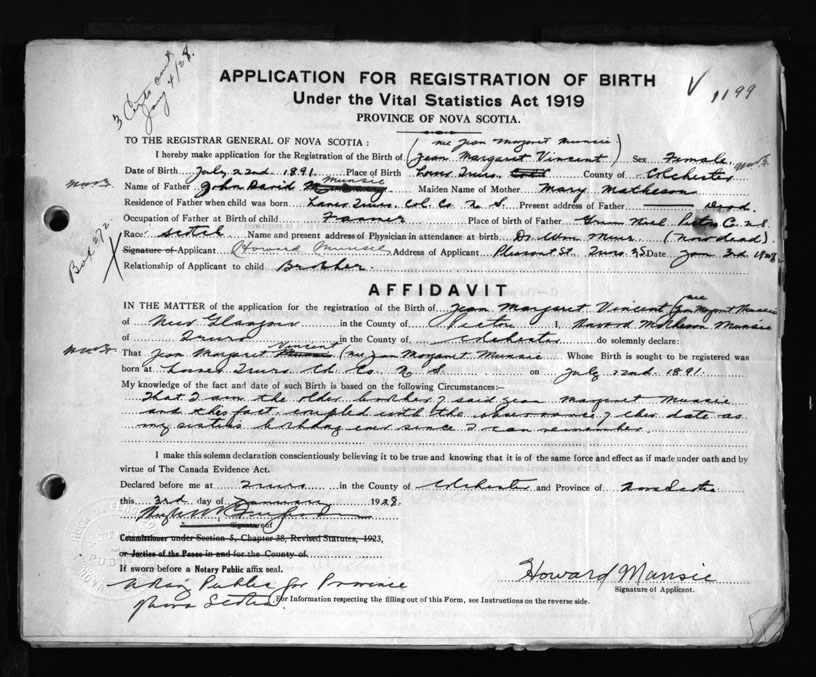 3 Certs and
Jany 4/28.
V 1199
APPLICATION FOR REGISTRATION OF BIRTH
Under the Vital Statistics Act 1919
PROVINCE OF NOVA SCOTIA.
TO THE REGISTRAR GENERAL OF NOVA SCOTIA: (nee Jean Margaret Munsie)
I hereby make application for the Registration of the Birth of Jean Margaret Vincent Sex Female
Date of Birth July 22nd. 1891. Place of Birth Lower Truro. County of Colchester
Name of Father John David Munsie Maiden Name of Mother Mary Matheson
Residence of Father when child was born Lower Truro. Col. Co. N. S. Present address of Father Dead.
Occupation of Father at Birth of child Farmer Place of birth of Father Pictou C. N.S
Race Scotch Name and present address of Physician in attendance at birth Dr Wm Muir (Now dead)
Signature of Applicant Howard Munsie Address of Applicant Pleasant St. Truro NS Date Jan 3rd 1928
Relationship of Applicant to child Brother.
Box 272
AFFIDAVIT
IN THE MATTER of the application for the registration of the Birth of Jean Margaret Vincent (nee Jean Margaret Munsie
of New Glasgow in the County of Pictou I, Howard Matheson Munsie
of Truro in the County of Colchester do solemnly declare:
That Jean Margaret Vincent (nee Jean Margaret Munsie Whose Birth is sought to be registered was
born at Lower Truro Col. Co. N. S on July 22nd. 1891.
My knowledge of the fact and date of such Birth is based on the following Circumstances:
That I am the older brother of said Jean Margaret Munsie
and this fact coupled with the observance of this date as
my sisters birthday ever since I can remember.
I make this solemn declaration conscientiously believing it to be true and knowing that it is of the same force and effect as if made under oath and by
virtue of The Canada Evidence Act.
Declared before me at Truro in the County of Colchester and Province of Nova Scotia
this 3rd day of January 1928.
Signature of
Commissioner under Section 5, Chapter 38, Revised Statutes, 1923,
or Justice of the Peace in and for the County of
If sworn before a Notary Public affix seal.
Howard Munsie
Signature of Applicant.
Notary Public for Province
Nova Scotia
For Information respecting the filling out of this Form, see Instructions on the reverse side.